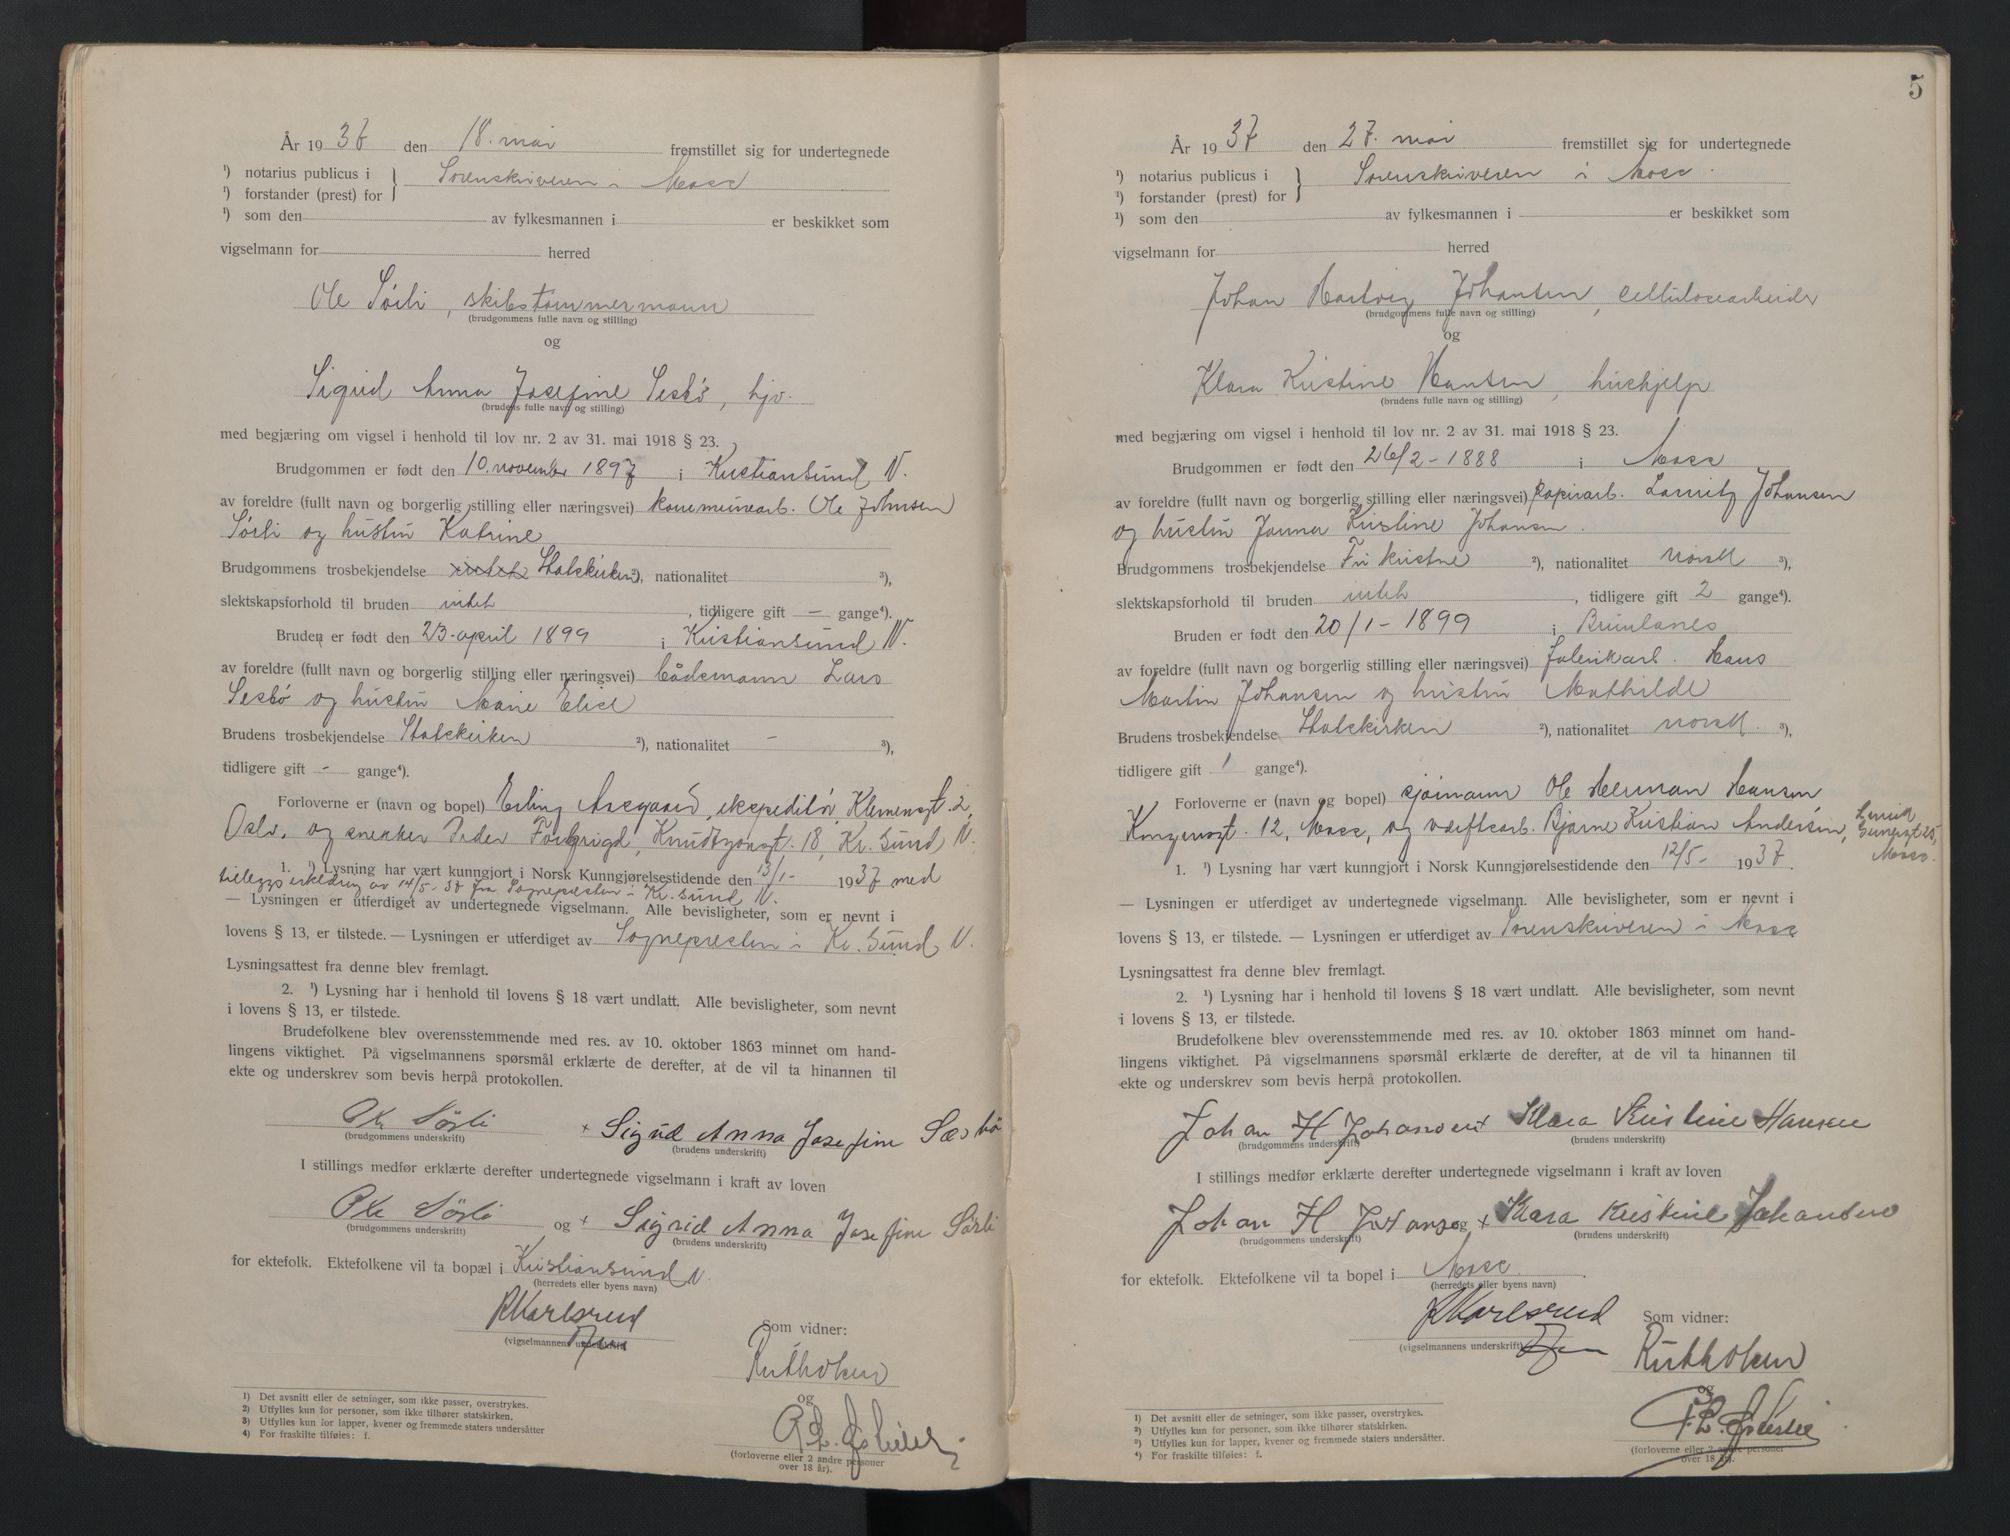 År 1937 den 18. mai fremstillet sig for undertegnede
¹) notarius publicus i
¹) forstander (prest) for } Sorenskriveren i Moss
¹) som den av fylkesmannen i er beskikket som
vigselmann for herred
Ole Sörli, skibstømmermann
(brudgommens fulle navn og stilling)
og
Sigrid Anna Josefine Sesbö, hjv.
(brudens fulle navn og stilling)
med begjæring om vigsel i henhold til lov nr. 2 av 31. mai 1918 § 23.
Brudgommen er født den 10. november 1897 i Kristiansund N.
av foreldre (fullt navn og borgerlig stilling eller næringsvei) kommunearb. Ole Johnsen
Sörli og hustru Katrine
Brudgommens trosbekjendelse Statskirken ²), nationalitet ³),
slektskapsforhold til bruden intet, tidligere gift — gange⁴).
Bruden er født den 23. april 1899 i Kristiansund N.
av foreldre (fullt navn og borgerlig stilling eller næringsvei) bådsmann Lars
Sesbö og hustru Marie Elise
Brudens trosbekjendelse Statskirken ²), nationalitet - ³),
tidligere gift - gange⁴).
Forloverne er (navn og bopel) Erling Aasgaard, ekspeditør, Klemensgt. 2,
Oslo, og snekker Peder Knudtzonsgt. 18, Kr.sund N.
1. ¹) Lysning har vært kunngjort i Norsk Kunngjørelsestidende den 13/1- 1937 med
tilleggserklæring av 14/5-37 fra Sognepresten i Kr.sund N.
— Lysningen er utferdiget av undertegnede vigselmann. Alle bevisligheter, som er nevnt i
lovens § 13, er tilstede. — Lysningen er utferdiget av Sognepresten i Kr.Sund N.
Lysningsattest fra denne blev fremlagt.
2. ¹) Lysning har i henhold til lovens § 18 vært undlatt. Alle bevisligheter, som nevnt
i lovens § 13, er tilstede.
Brudefolkene blev overensstemmende med res. av 10. oktober 1863 minnet om hand-
lingens viktighet. På vigselmannens spørsmål erklærte de derefter, at de vil ta hinannen til
ekte og underskrev som bevis herpå protokollen.
Ole Sörli + Sigrid Anna Josefine Sæsbö
(brudgommens underskrift) (brudens underskrift)
I stillings medfør erklærte derefter undertegnede vigselmann i kraft av loven
Ole Sörli og + Sigrid Anna Josefine Sörli
(brudgommens underskrift) (brudens underskrift)
for ektefolk. Ektefolkene vil ta bopæl i Kristiansund N.
(herredets eller byens navn)
Karlsrud
(vigselmannens underskrift)
Som vidner:
Ruth Olsen
og
(forloverne eller 2 andre personer
over 18 år).
1) Det avsnitt eller de setninger, som ikke passer, overstrykes.
2) Utfylles kun for personer, som ikke tilhører statskirken.
3) Utfylles kun for lapper, kvener og fremmede staters undersåtter
4) For fraskilte tilføies: f.
5
År 1937 den 27. mai fremstillet sig for undertegnede
¹) notarius publicus i
¹) forstander (prest) for } Sorenskriveren i Moss.
¹) som den av fylkesmannen i er beskikket som
vigselmann for herred
Johan Hartvig Johansen, cellulosearbeider
(brudgommens fulle navn og stilling)
og
Klara Kristine Hansen, hushjelp
(brudens fulle navn og stilling)
med begjæring om vigsel i henhold til lov nr. 2 av 31. mai 1918 § 23.
Brudgommen er født den 26/2-1888 i Moss
av foreldre (fullt navn og borgerlig stilling eller næringsvei) papirarb. Lauritz Johansen
og hustru Janna Kristine Johansen.
Brudgommens trosbekjendelse Fri kristne ²), nationalitet norsk ³),
slektskapsforhold til bruden intet, tidligere gift 2 gange⁴).
Bruden er født den 20/1-1899 i Brunlanes
av foreldre (fullt navn og borgerlig stilling eller næringsvei) fabrikarb. Hans
Martin Johansen og hustru Mathilde
Brudens trosbekjendelse Statskirken ²), nationalitet norsk. ³),
tidligere gift 1 gange⁴).
Forloverne er (navn og bopel) sjømann Ole Herman Hansen,
Kongensgt. 12, Moss, og verftsarb. Bjarne Kristian Andersen,
Moss.
1. ¹) Lysning har vært kunngjort i Norsk Kunngjørelsestidende den 12/5- 1937.
— Lysningen er utferdiget av undertegnede vigselmann. Alle bevisligheter, som er nevnt i
lovens § 13, er tilstede. — Lysningen er utferdiget av Sorenskriveren i Moss
Lysningsattest fra denne blev fremlagt.
2. ¹) Lysning har i henhold til lovens § 18 vært undlatt. Alle bevisligheter, som nevnt
i lovens § 13, er tilstede.
Brudefolkene blev overensstemmende med res. av 10. oktober 1863 minnet om hand-
lingens viktighet. På vigselmannens spørsmål erklærte de derefter, at de vil ta hinannen til
ekte og underskrev som bevis herpå protokollen.
Johan H Johansen + Klara Kristine Hansen
(brudgommens underskrift) (brudens underskrift)
I stillings medfør erklærte derefter undertegnede vigselmann i kraft av loven
Johan H Johansen og + Klara Kristine Johansen
(brudgommens underskrift) (brudens underskrift)
for ektefolk. Ektefolkene vil ta bopel i Moss.
(herredets eller byens navn)
Karlsrud
(vigselmannens underskrift)
Som vidner:
Ruth Olsen
og
(forloverne eller 2 andre personer
over 18 år).
1) Det avsnitt eller de setninger, som ikke passer, overstrykes.
2) Utfylles kun for personer, som ikke tilhører statskirken.
3) Utfylles kun for lapper, kvener og fremmede staters undersåtter.
4) For fraskilte tilføies: f.